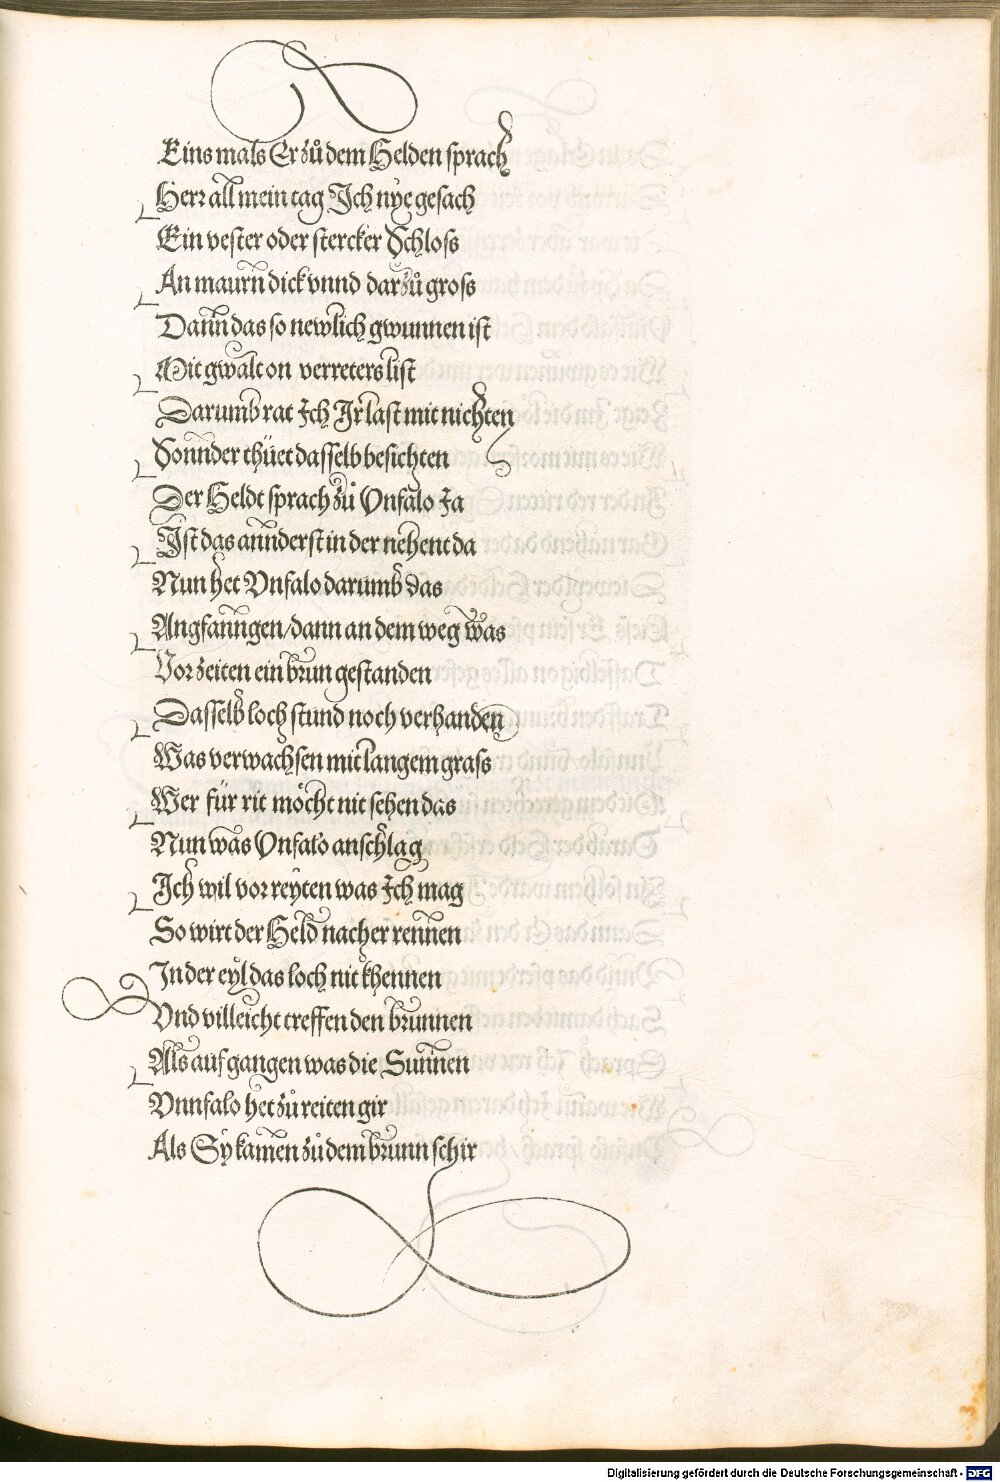 Eins mals Er zů dem Helden sprach
Herr all mein tag Ich nye gesach
Ein vester oder stercker Schloss
An maurn dick vnnd darzů gross
Dann das so newlich gwunnen ist
Mit gwalt on verreters list
Darumb rat Ich Ir last mit nichten
Sonnder thüet dasselb besichten
Der Heldt sprach zů Vnfalo Ja
Ist das annderst in der nehent da
Nun het Vnfalo darumb das
Angfanngen / dann an dem weg was
Vor zeiten ein brun gestanden
Dasselb loch stund noch verhanden
Was verwachsen mit langem grass
Wer für rit möcht nit sehen das
Nun was Vnfalo anschlag
Ich wil vor reyten was Ich mag
So wirt der Held nacher rennen
In der eyl das loch nit khennen
Vnd villeicht treffen den brunnen
Als auf gangen was die Sunnen
Vnnfalo het zů reiten gir
Als Sy kamen zů dem brunn schir
Digitalisierung gefördert durch die Deutsche Forschungsgemeinschaft - DFG